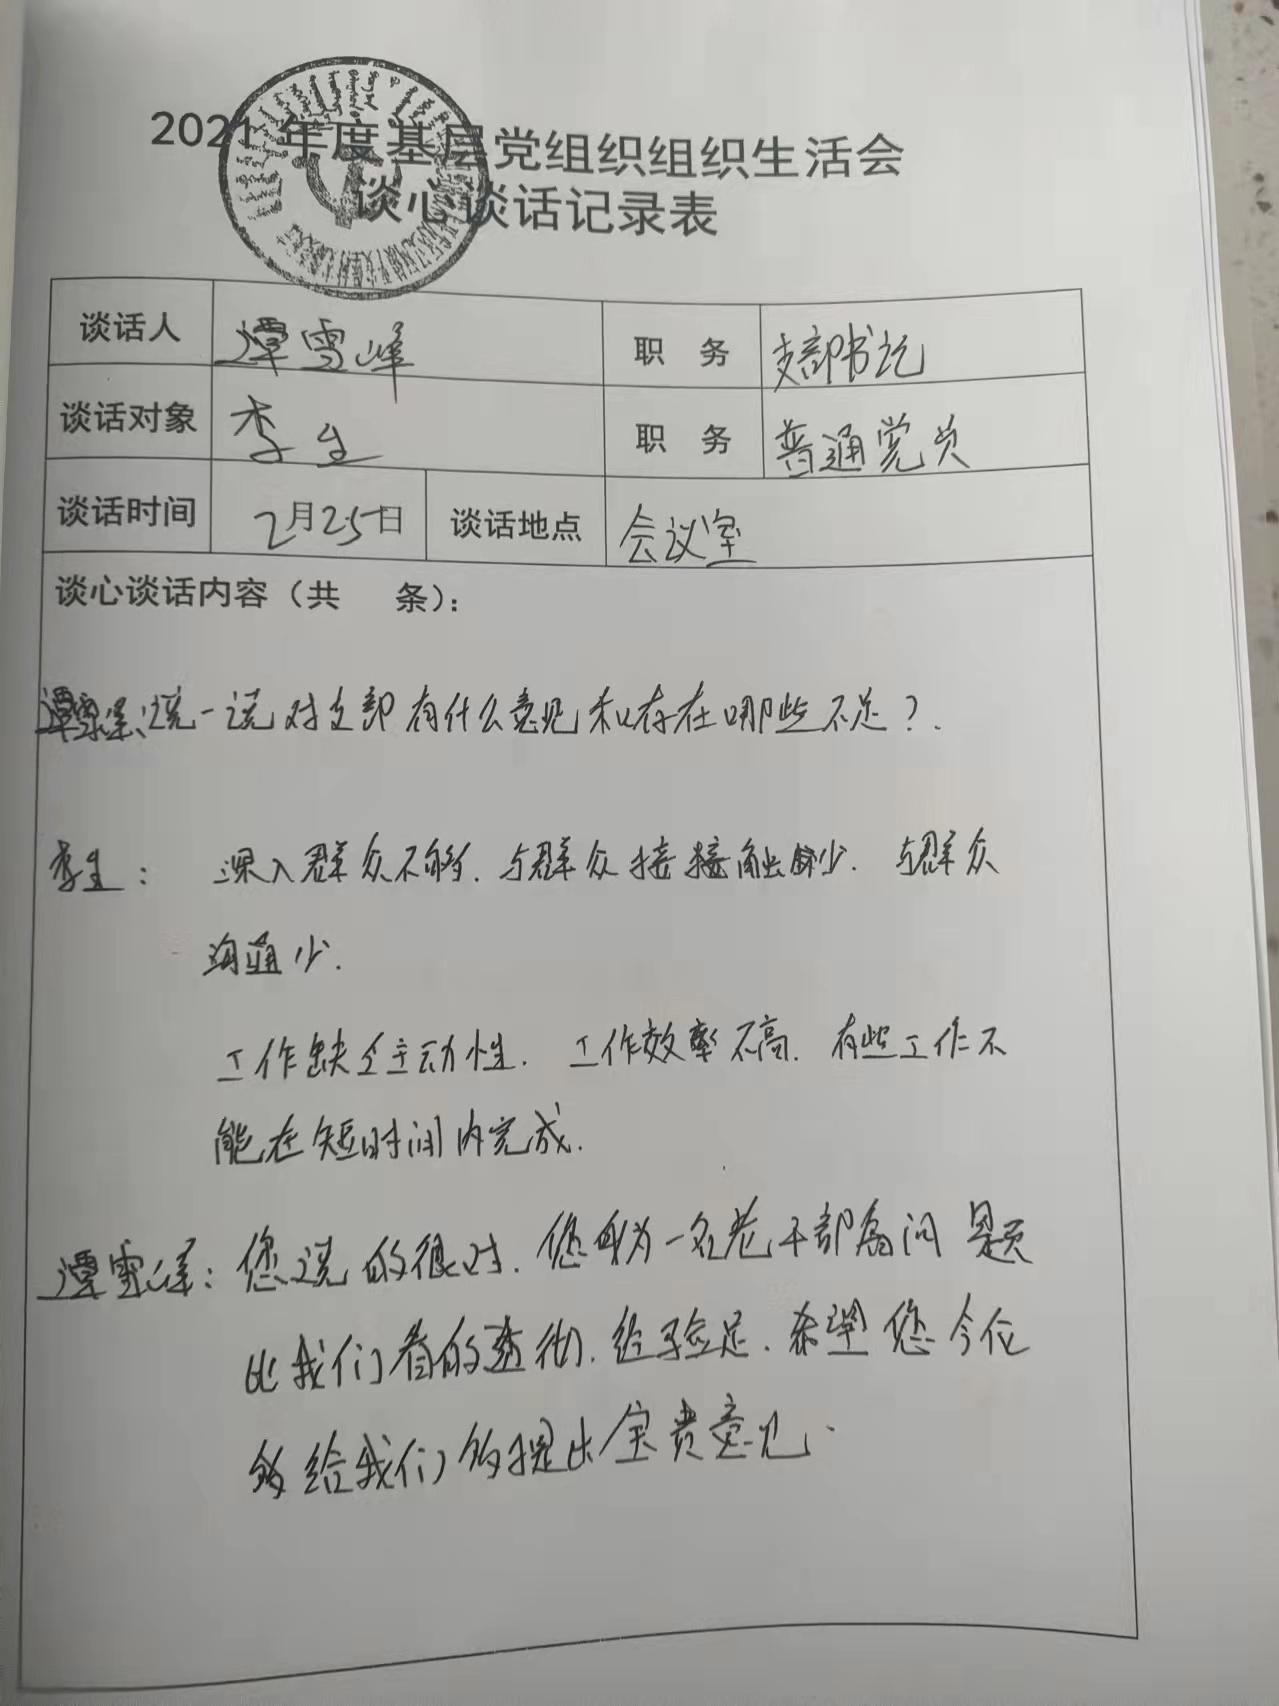 2021 年度基层党组织组织生活会
谈心谈话记录表
谈话人 谭雪峰 职 务 支部书记
谈话对象 李生 职 务 普通党员
谈话时间 2月25日 谈话地点 会议室
谈心谈话内容（共 条）：
谭雪峰：说一说对支部有什么意见和存在哪些不足？.
李生： 深入群众不够. 与群众接接触少. 与群众
沟通少.
工作缺乏主动性. 工作效率不高. 有些工作不
能在短时间内完成.
谭雪峰：您说的很对. 您身为一名老干部看问题
比我们看的透彻. 经验足. 希望您今后
多给我们多提出宝贵意见.